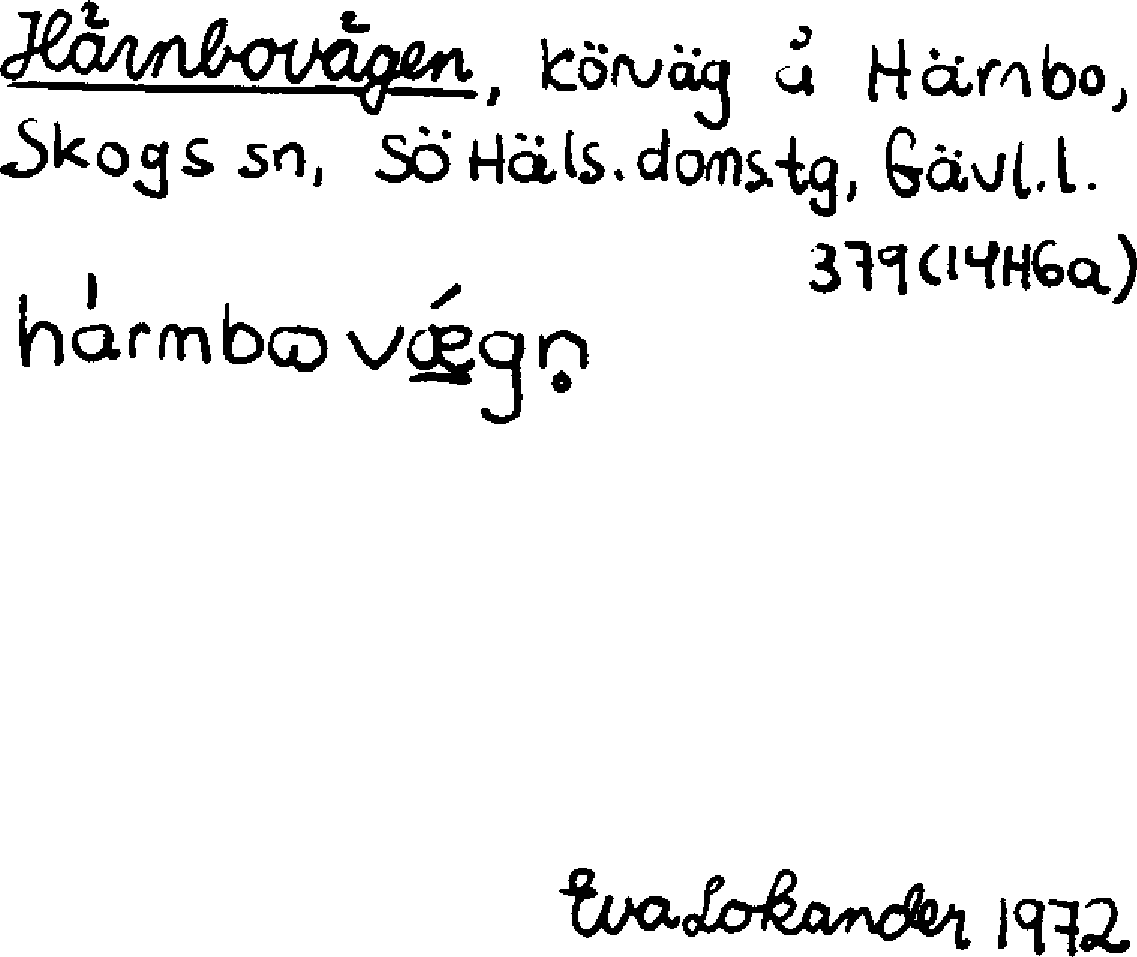 Härnbovägen, körväg å Härnbo,
Skogs sn, SöHäls.doms.tg, Gävl.l.
379(14H6a)
hármbωvǽgn̥
Eva Lokander 1972